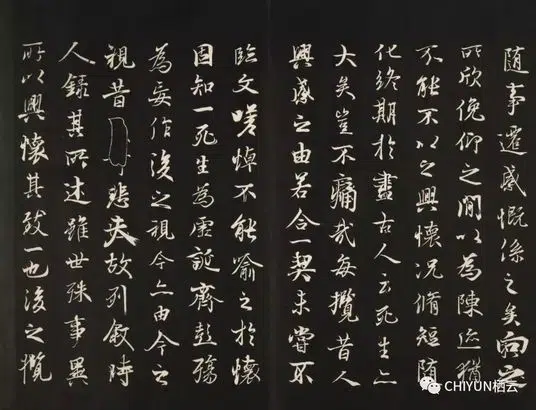 随事遷感慨係之矣向之
所欣俛仰之間以為陳迹猶
不能不以之興懷況脩短随
化終期於盡古人云死生亦
大矣豈不痛哉每攬昔人
興感之由若合一契未嘗不
臨文嗟悼不能喻之於懷
固知一死生為虛誕齊彭殤
為妄作後之視今亦由今之
視昔悲夫故列敘時
人錄其所述雖世殊事異
所以興懷其致一也後之攬
CHIYUN栖云